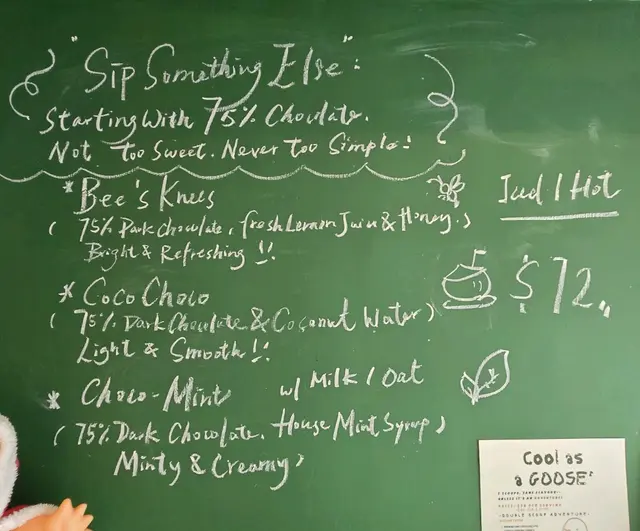 "Sip Something Else":
Starting With 75% Chocolate.
Not Too Sweet. Never Too Simple!
* Bee's Knees
Iced / Hot
( 75% Dark Chocolate, fresh Lemon Juice & Honey.)
Bright & Refreshing !!
$72
* Coco Choco
( 75% Dark Chocolate & Coconut Water )
Light & Smooth!!
* Choco-Mint w/ Milk / Oat
( 75% Dark Chocolate, House Mint Syrup )
Minty & Creamy
Cool as
a GOOSE